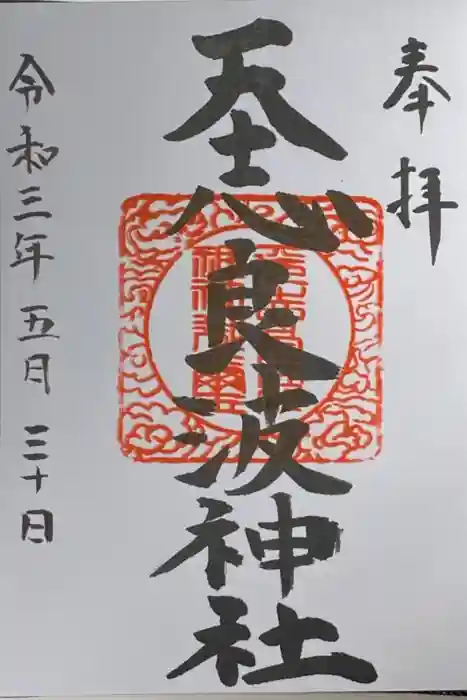 奉拝
天志良波神社
令和三年五日三十日